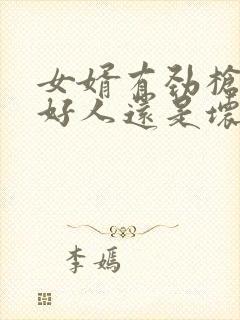 女婿有劲槍
好人還是壞
李嫣